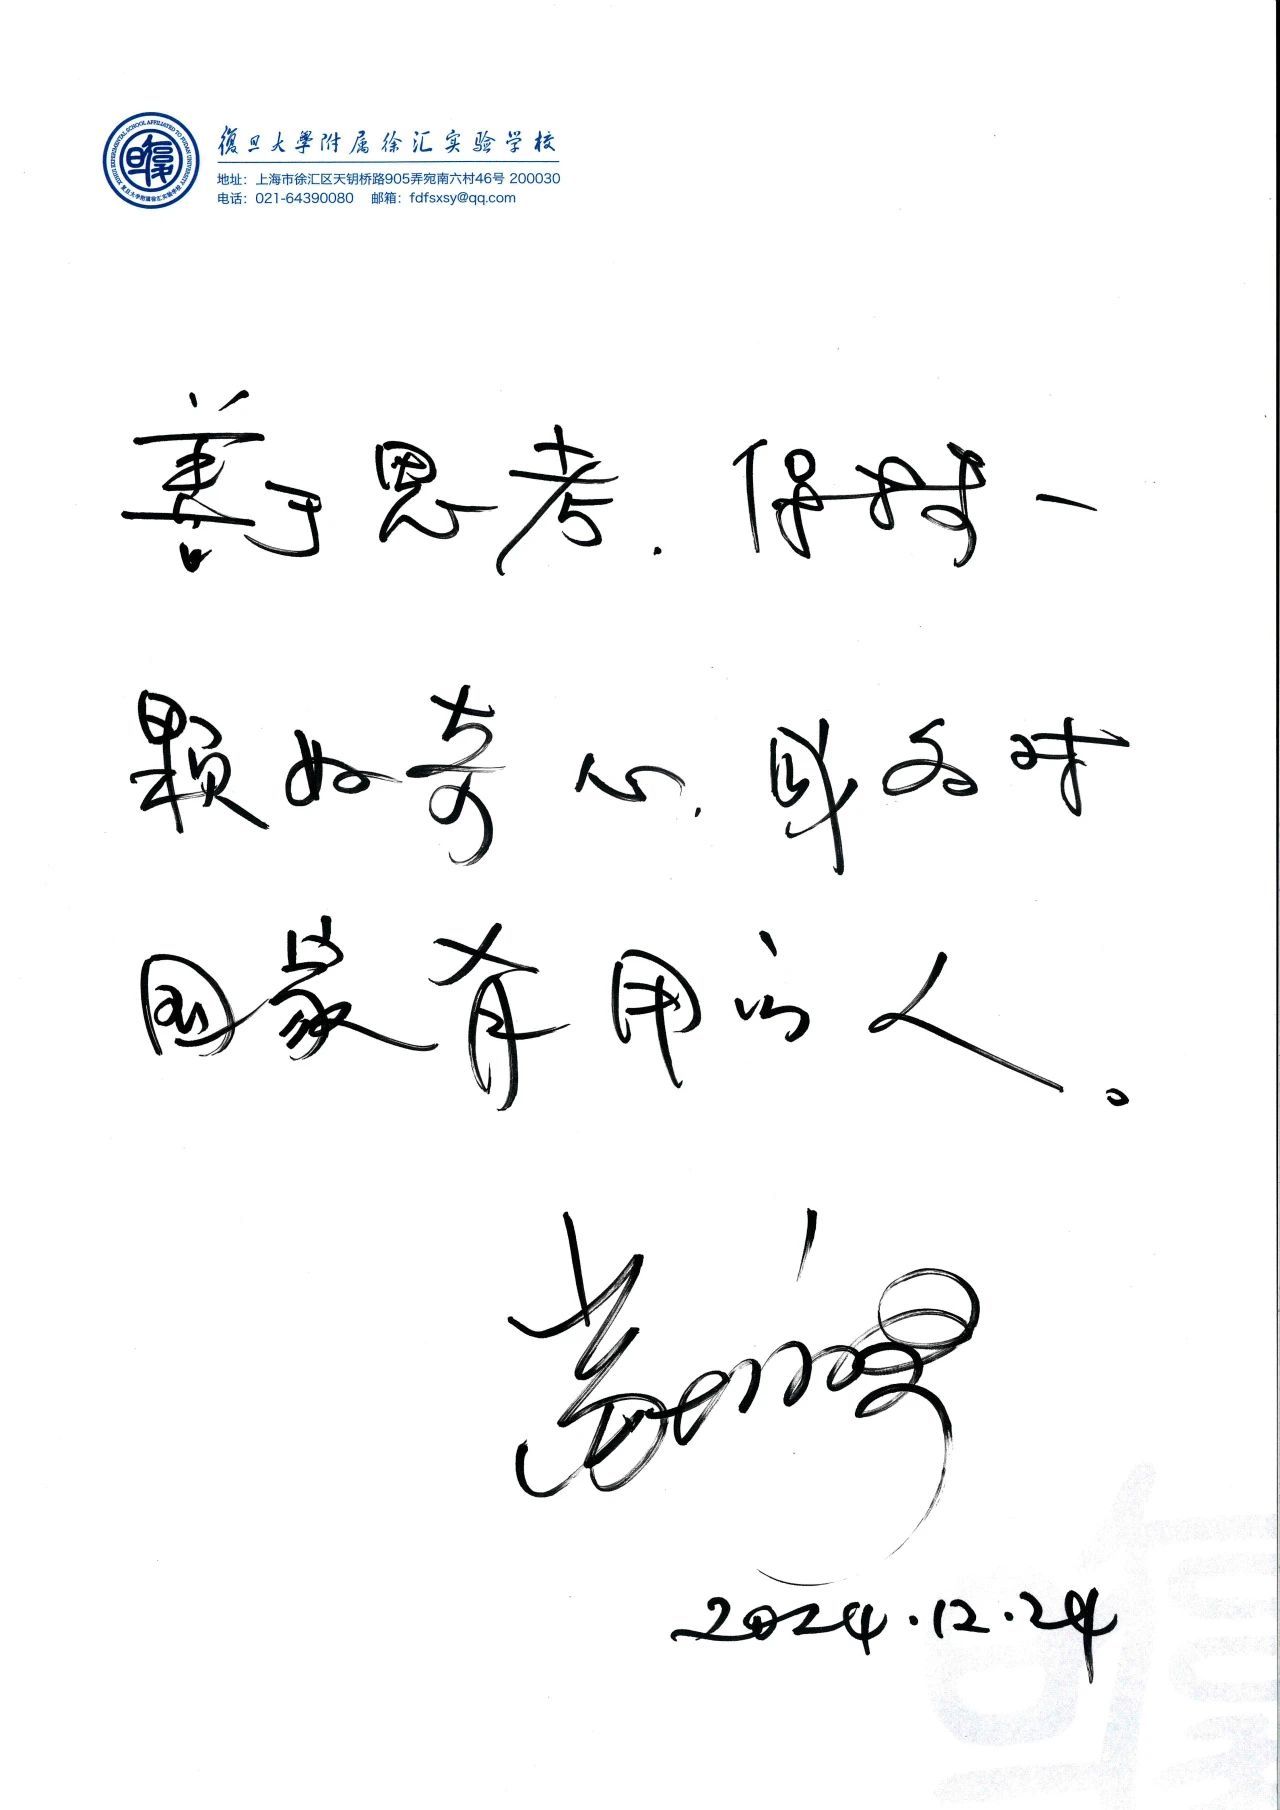 復旦大學附属徐汇实验学校
地址：上海市徐汇区天钥桥路905弄宛南六村46号 200030
电话：021-64390080 邮箱：fdfsxsy@qq.com
善于思考，保持一
颗好奇心，成为对
国家有用的人。
2024.12.24